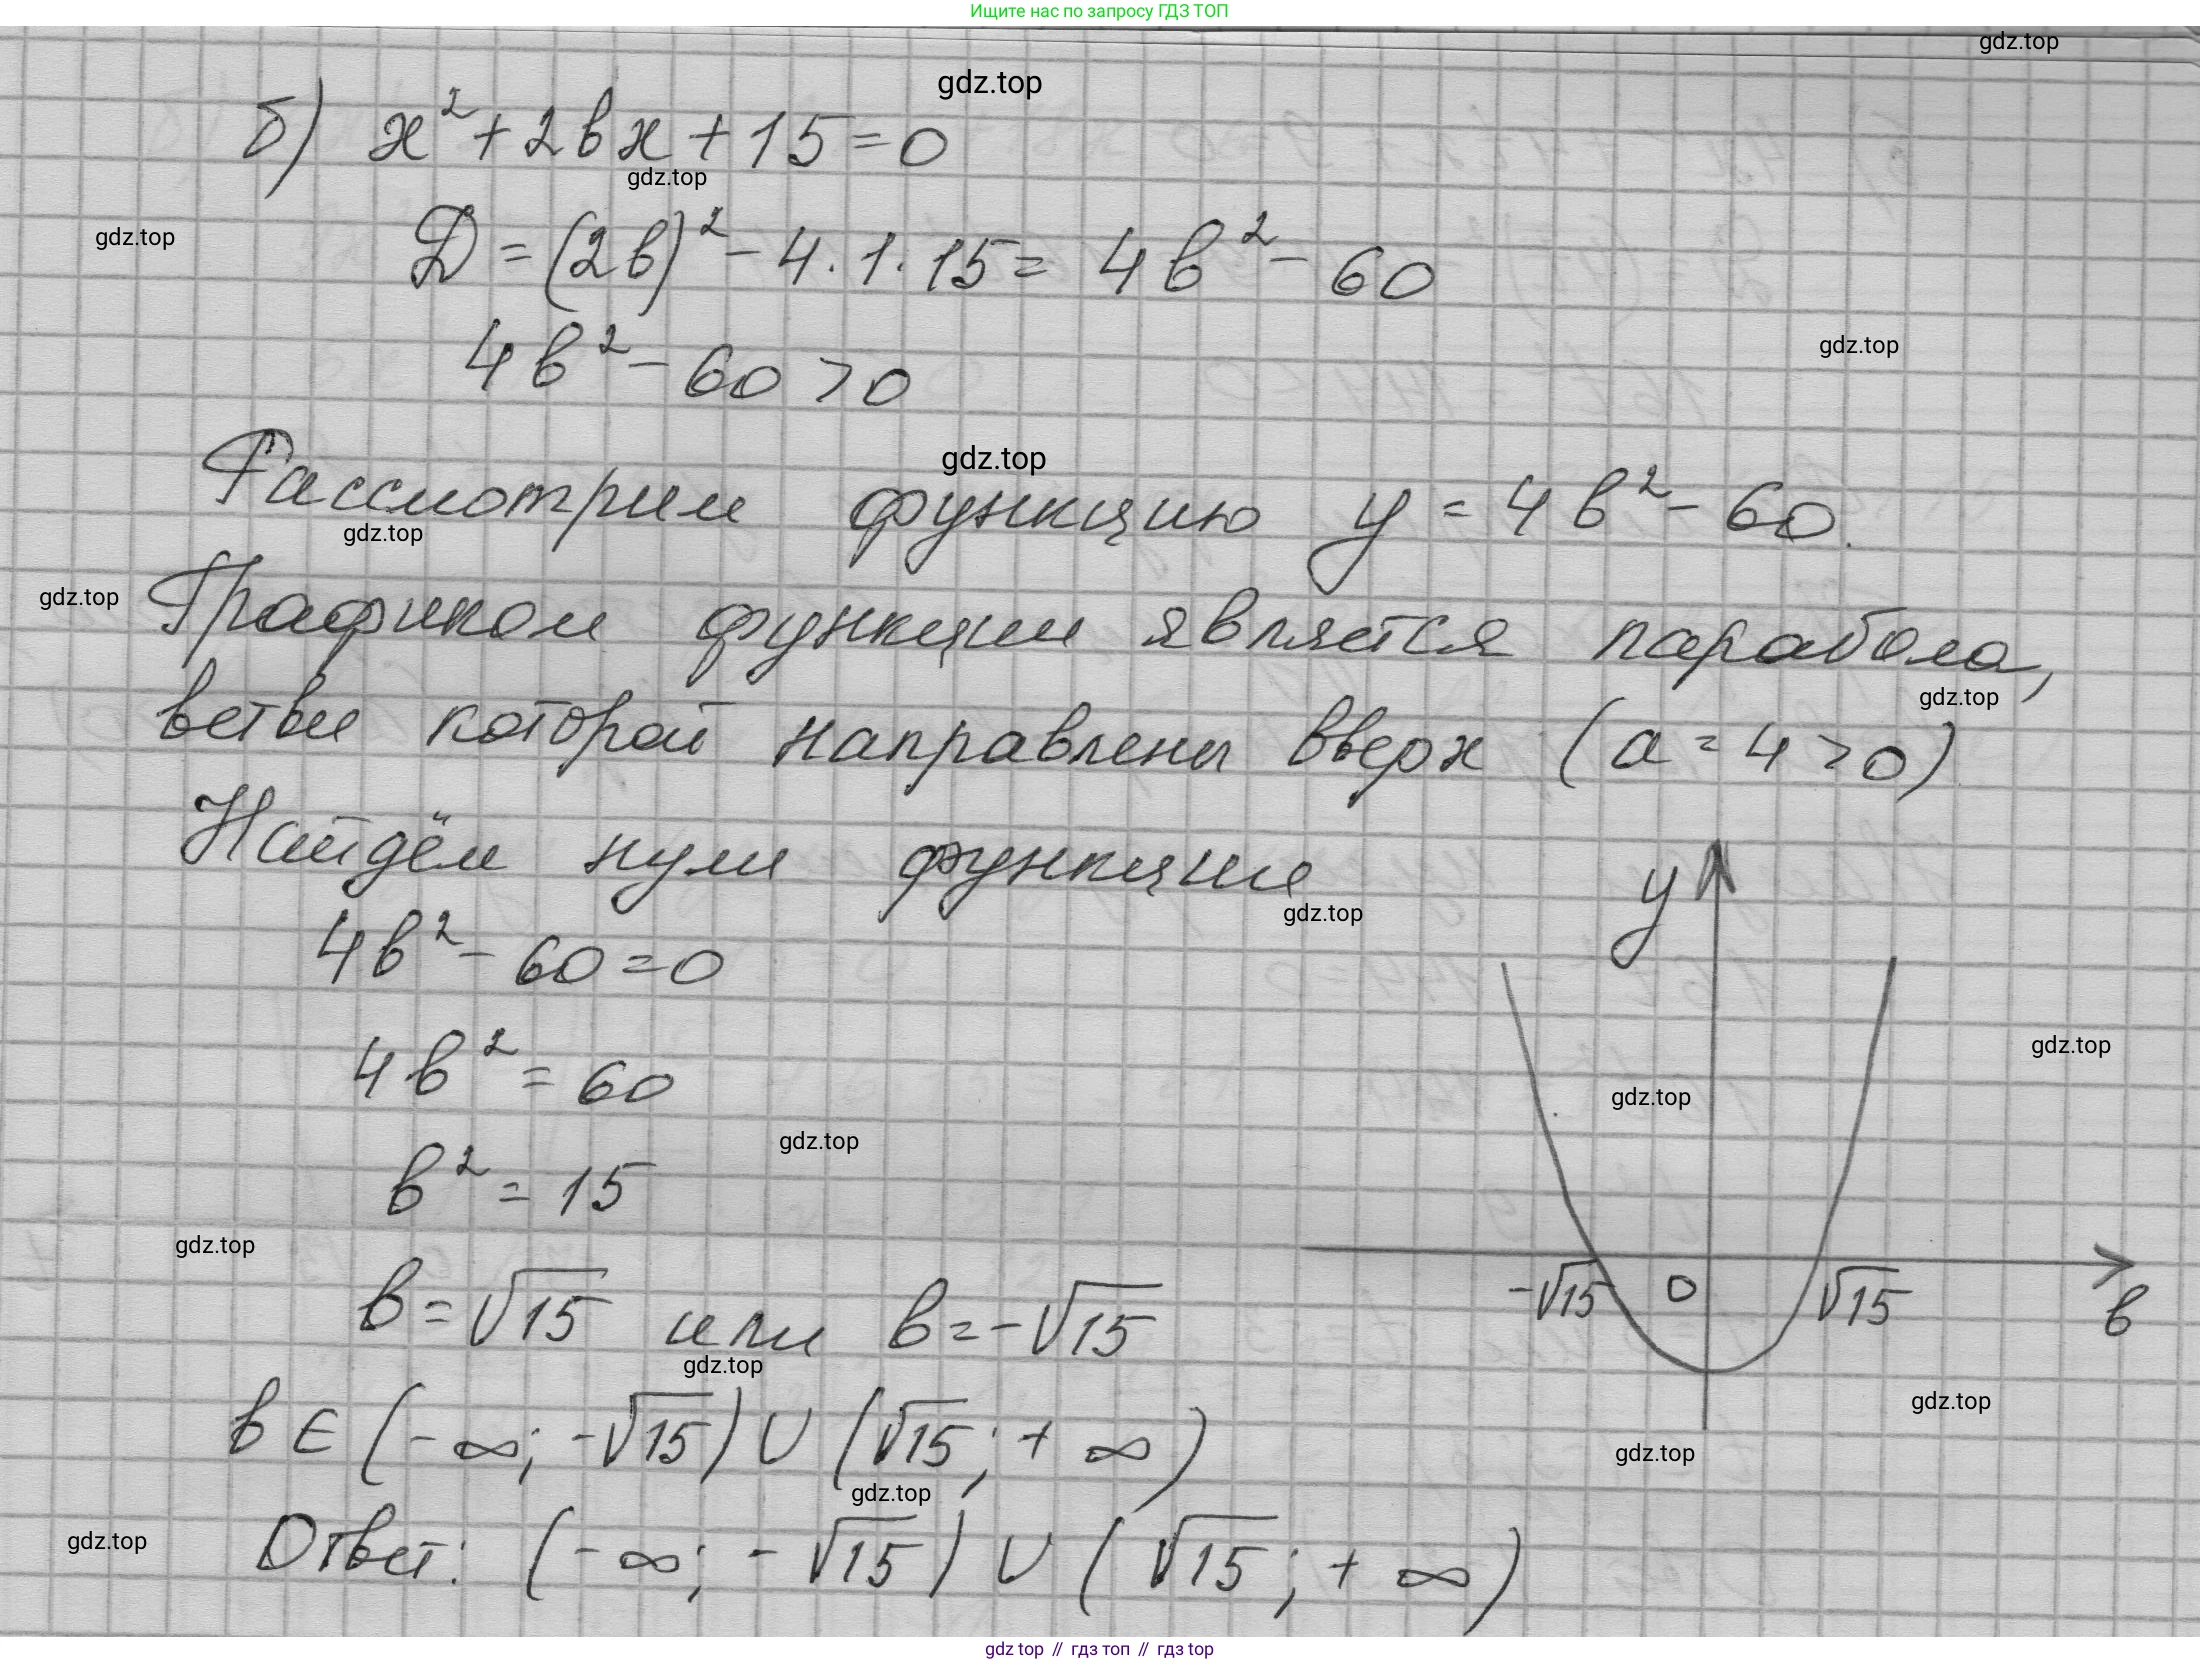 Ищите нас по запросу ГДЗ ТОП
gdz.top
gdz.top
б) x² + 2bx + 15 = 0
gdz.top
gdz.top
D = (2b)² - 4 · 1 · 15 = 4b² - 60
4b² - 60 > 0
gdz.top
Рассмотрим функцию y = 4b² - 60.
gdz.top
gdz.top
gdz.top
Графиком функции является парабола,
gdz.top
ветви которой направлены вверх (a = 4 > 0)
Найдём нули функции
gdz.top
4b² - 60 = 0
4b² = 60
gdz.top
b² = 15
gdz.top
b = √15 или b = -√15
gdz.top
b ∈ (-∞; -√15) ∪ (√15; +∞)
gdz.top
gdz.top
Ответ: (-∞; -√15) ∪ (√15; +∞)
y
gdz.top
gdz.top
-√15 0 √15 b
gdz.top
gdz.top
gdz top // гдз топ // гдз top